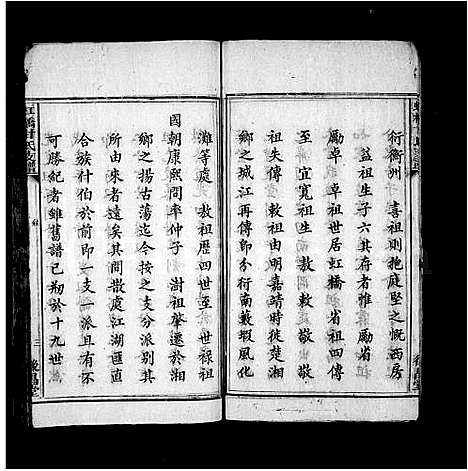 衍衝州 喜祖則抱庭堅之慨西房
益祖生子六其存者惟 勵省
勵卓 卓祖世居虹橋 省祖四傳
至 宜寬祖生 敖開敕 敬敬
祖失傳 敕祖由明嘉靖時徙湖
鄉之城江再傳即分衍南藪蝦風化
灘等處 敖祖歷四世至 世祿祖
國朝康熙間率仲子 澍祖肇遷於湘
鄉之揚古蕩迄今按之支分派別其
由來者遠矣其間撒處江湖匪遺
合族什伯於前即一支一派且有不
可勝紀者雖舊譜已刱於十九世
虹橋甘氏支譜
三